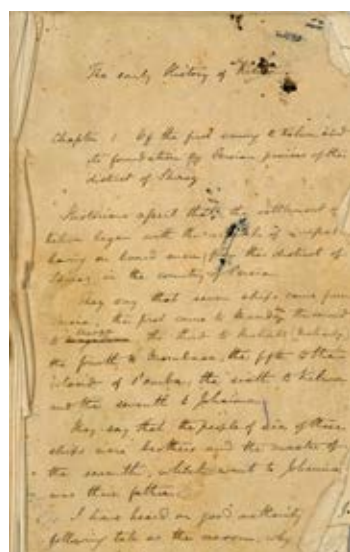 The early History of Kilwa
Chapter 1 Of the first coming to Kilwa and
its foundation by Persian princes of the
district of Shiraz
Historians assert that the settlement of
Kilwa began with the of a ship
having on board men, from the district of
Shiraz in the country of Persia
They say that seven ships came from
the first came to Mandy, the second
to the third to
the fourth to Mombasa, the fifth to the
island of Pemba, the sixth to Kilwa
and the seventh to Johanna
They say that the people of six of these
ships were brothers and the master of
the seventh, which went to Johanna
was their father
I have heard on good authority
following tale as the reason, why